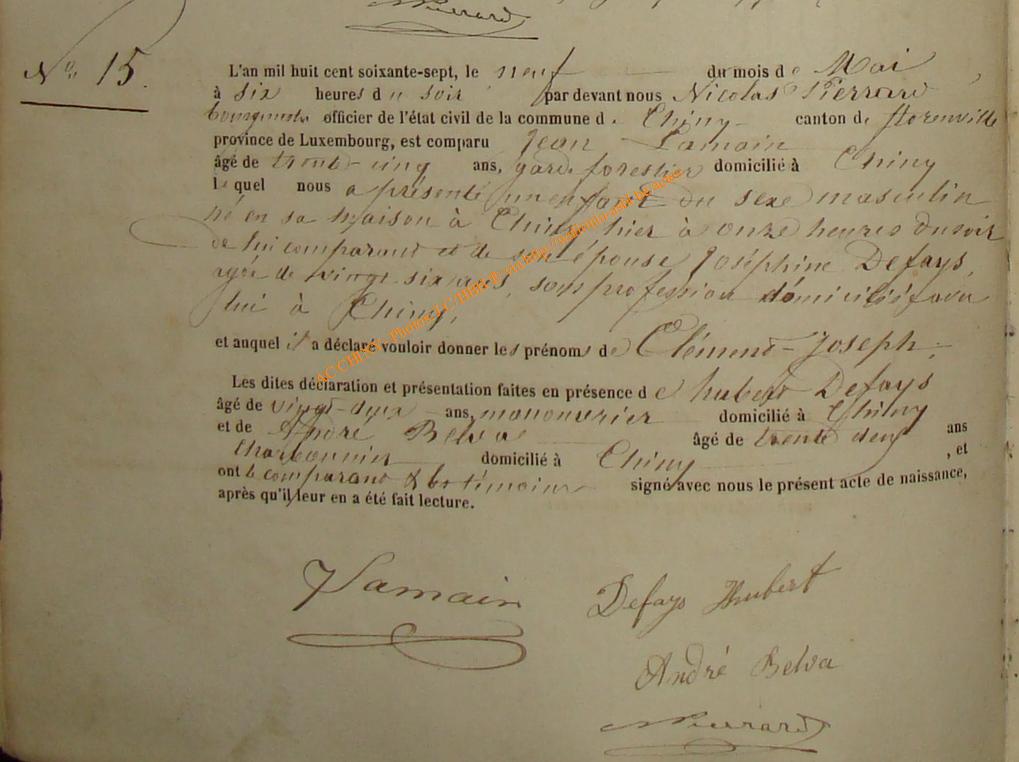 Nº 15.
L'an mil huit cent soixante-sept, le neuf du mois de Mai,
à six heures du soir par devant nous Nicolas Pierrard
bourgmestre officier de l'état civil de la commune de Chiny canton de florenville
province de Luxembourg, est comparu Jean Lamain
âgé de trente-cinq ans, garde forestier domicilié à Chiny
lequel nous a présenté un enfant du sexe masculin
né en sa maison à Chiny, hier à onze heures du soir
de lui comparant et de son épouse Joséphine Defays,
agée de vingt six ans, sans profession domiciliée avec
lui à Chiny,
et auquel il a déclaré vouloir donner les prénoms de Clément-Joseph.
Les dites déclaration et présentation faites en présence de hubert Defays
âgé de vingt-deux ans, manouvrier domicilié à Chiny
et de André Belva âgé de trente deux ans
Charbonnier domicilié à Chiny, et
ont le comparant & les témoins signé avec nous le présent acte de naissance,
après qu'il leur en a été fait lecture.
Lamain Defays Hubert
André Belva
Pierrard